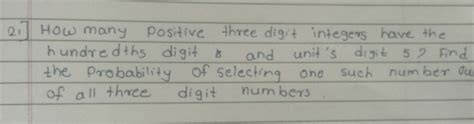 21] How many positive three digit integers have the
hundredths digit 8 and unit's digit 5? Find
the Probability of selecting one such number Ou
of all three digit numbers